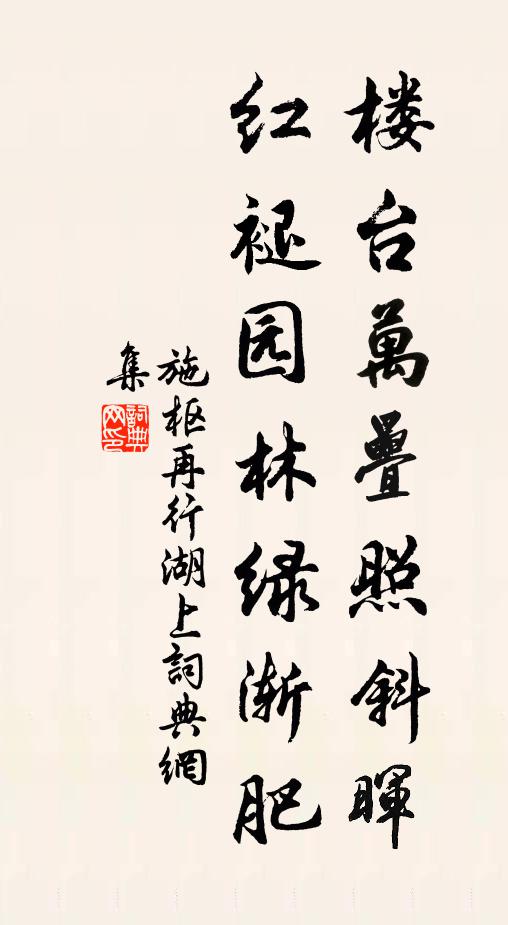 楼台萬疊照斜暉
红褪园林绿渐肥
施枢再行湖上詞典網
集
詞典网印